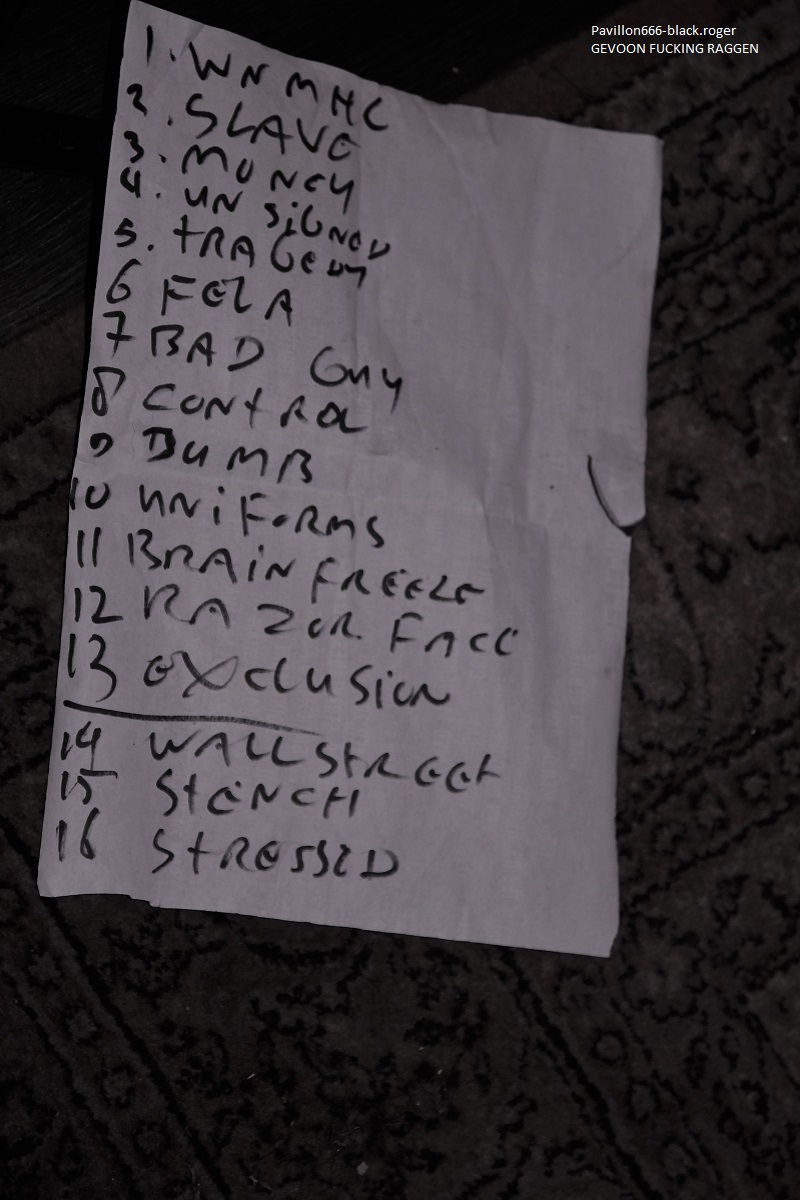 Pavillon666-black.roger
GEVOON FUCKING RAGGEN
1. WNMHC
2. SLAVE
3. MONEY
4. UNSIGNED
5. TRAGEDY
6 FEZA
7 BAD GUY
8 CONTROL
9 DUMB
10 UNIFORMS
11 BRAIN FREEZE
12 RAZOR FACE
13 EXCLUSION
14 WALLSTREET
15 STENCH
16 STRESSED